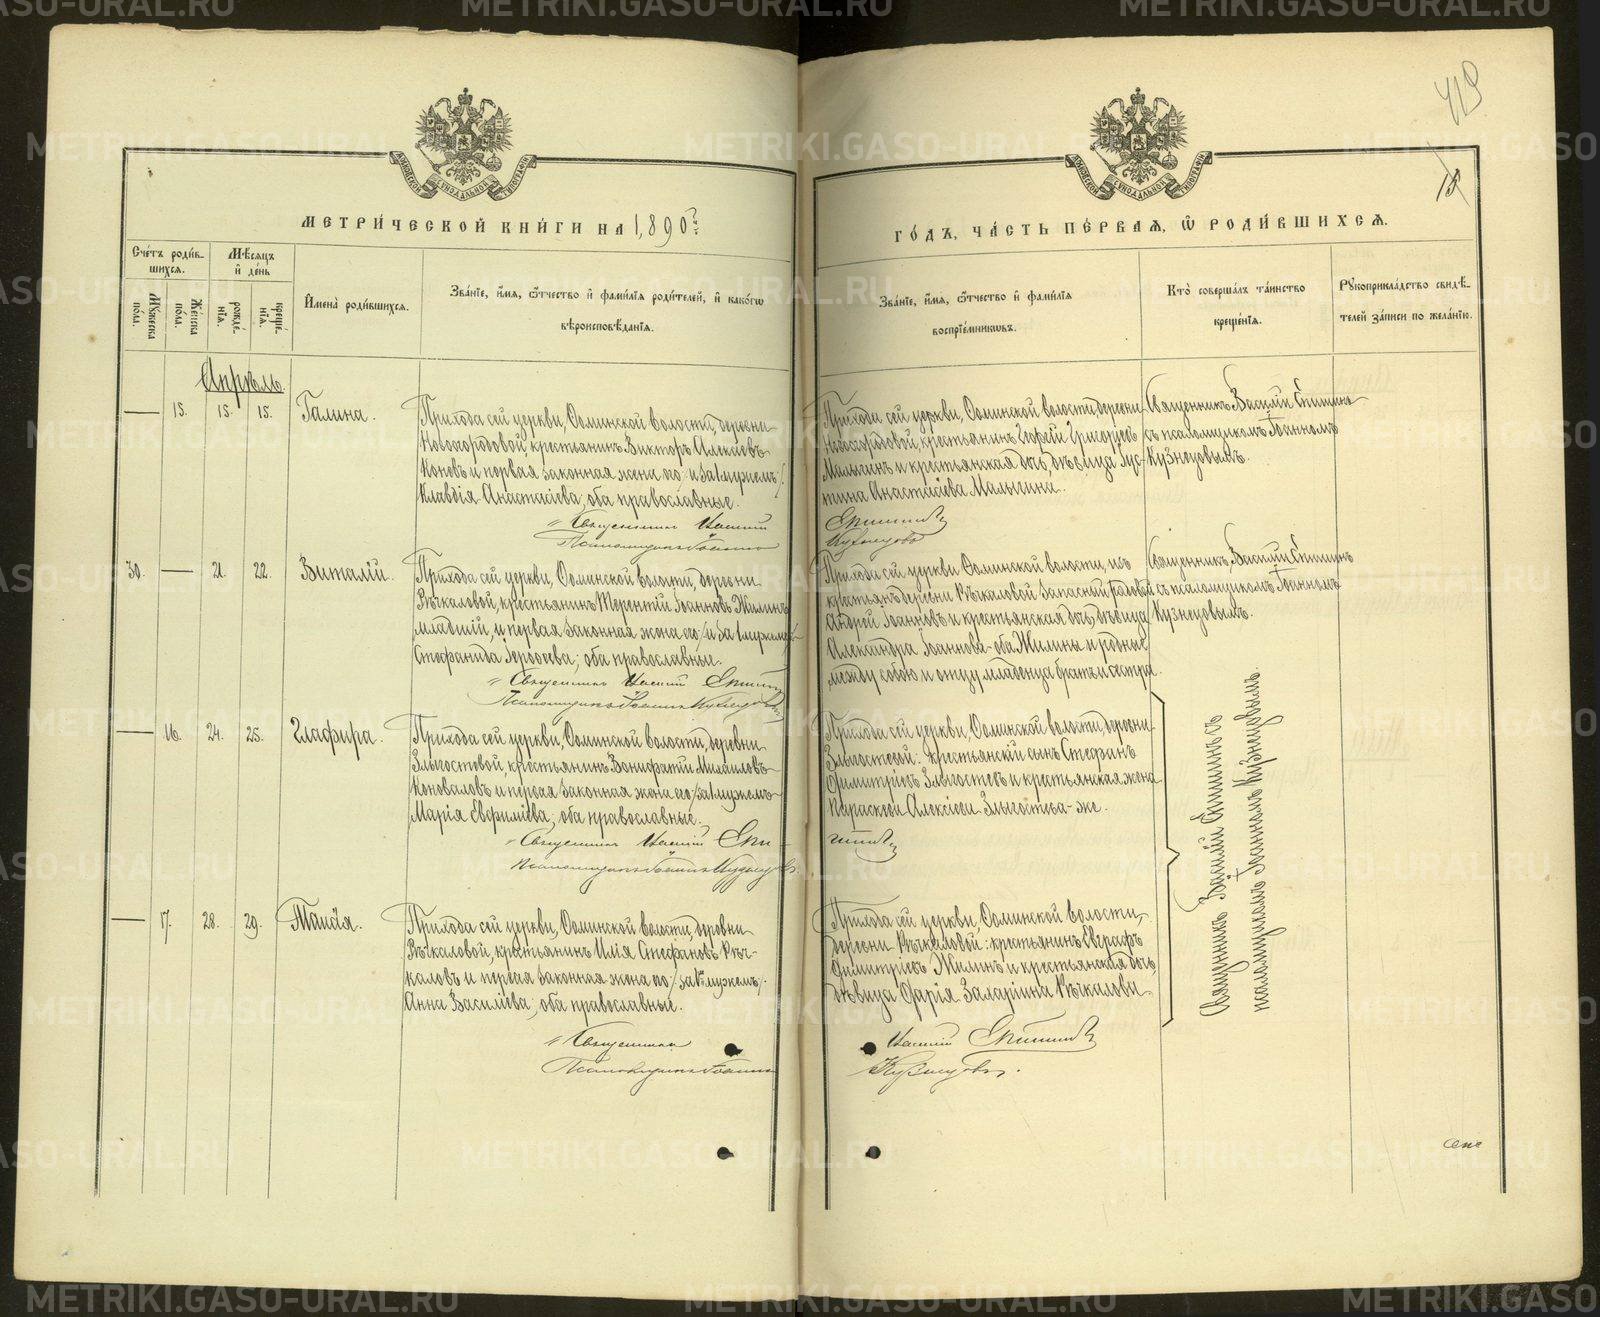 419
15
МЕТРИ́ЧЕСКОЙ КНИ́ГИ НА 1,890й
ГО́ДЪ, ЧА́СТЬ ПЕ́РВАЯ, Ѽ РОДИ́ВШИХСЯ.
Сче́тъ роди́в-
шихся.
Мѣ́сяцъ
и҆ де́нь
Мꙋжеска
по́ла.
Же́нска
по́ла.
рожде́-
нїя.
креще́-
нїя.
И҆мена̀ роди́вшихся.
Зва́нїе, и҆́мя, ѻ҆́тчество и҆ фами́лїя роди́телей, и҆ како́гѡ
вѣроисповѣ́данїя.
Зва́нїе, и҆́мя, ѻ҆́тчество и҆ фами́лїя
воспрїе́мникѡвъ.
Кто̀ соверша́лъ та́инство
креще́нїя.
Рꙋкоприкла́дство свидѣ́-
телей за́писи по жела́нїю.
Апрѣль.
— 15. 15. 15. Галина.
Прихода сей церкви, Осминской волости, деревни
Новогородовой, крестьянинъ Викторъ Алексіевъ
Коневъ и первая законная жена его /и за 1 мужемъ/
Клавдія Анастасіева; оба православные.
Священникъ Василій
Псаломщикъ Іоаннъ
Прихода сей церкви, Осминской волости, деревни
Новогородовой, крестьянинъ Георгій Григорьевъ
Малыгинъ и крестьянская дочь, дѣвица Іус-
тина Анастасіева Малыгина.
Епишинъ
Кузнецовъ
Священникъ Василій Епишинъ
съ псаломщикомъ Іоанномъ
Кузнецовымъ.
30. — 21. 22. Виталій.
Прихода сей церкви, Осминской волости, деревни
Рѣкаловой, крестьянинъ Терентій Іоанновъ Жилинъ
младшій, и первая законная жена его /и за 1 мужемъ/
Стефанида; оба православны.
Священникъ Василій Епишинъ
Псаломщикъ Іоаннъ Кузнецовъ
Прихода сей церкви Осминской волости, изъ
крестьянъ деревни Рѣкаловой Запасный рядовой
Андрей Іоанновъ и крестьянская дочь, дѣвица
Александра Іоаннова - оба Жилины и родные
между собою и отцу младенца братъ и сестра.
Священникъ Василій Епишинъ
съ псаломщикомъ Іоанномъ
Кузнецовымъ.
— 16. 24. 25. Глафира.
Прихода сей церкви, Осминской волости, деревни
Злыгостевой, крестьянинъ Вонифатій Михаиловъ
Коноваловъ и первая законная жена его /за 1 мужемъ
Марія Евфиміева; оба православные.
Священникъ Василій Епи-
Псаломщикъ Іоаннъ Кузнецовъ.
Прихода сей церкви, Осминской волости, деревни
Злыгостевой: крестьянскій сынъ Стефанъ
Димитріевъ Злыгостевъ и крестьянская жена
Параскева Алексіева Злыгостева-же.
шинъ
— 17. 28. 29. Таисія.
Прихода сей церкви, Осминской волости, деревни
Рѣкаловой, крестьянинъ Илія Стефановъ Рѣ-
каловъ и первая законная жена его /за 1мъ мужемъ/.
Анна Василіева; оба православные.
Священникъ
Псаломщикъ Іоаннъ
Прихода сей церкви, Осминской волости,
деревни Рѣкаловой: крестьянинъ Евграфъ
Димитріевъ Жилинъ и крестьянская дочь,
дѣвица Дарія Рѣкалова.
Василій Епишинъ
Кузнецовъ.
Священникъ Василій Епишинъ съ
псаломщикомъ Іоанномъ Кузнецовымъ.